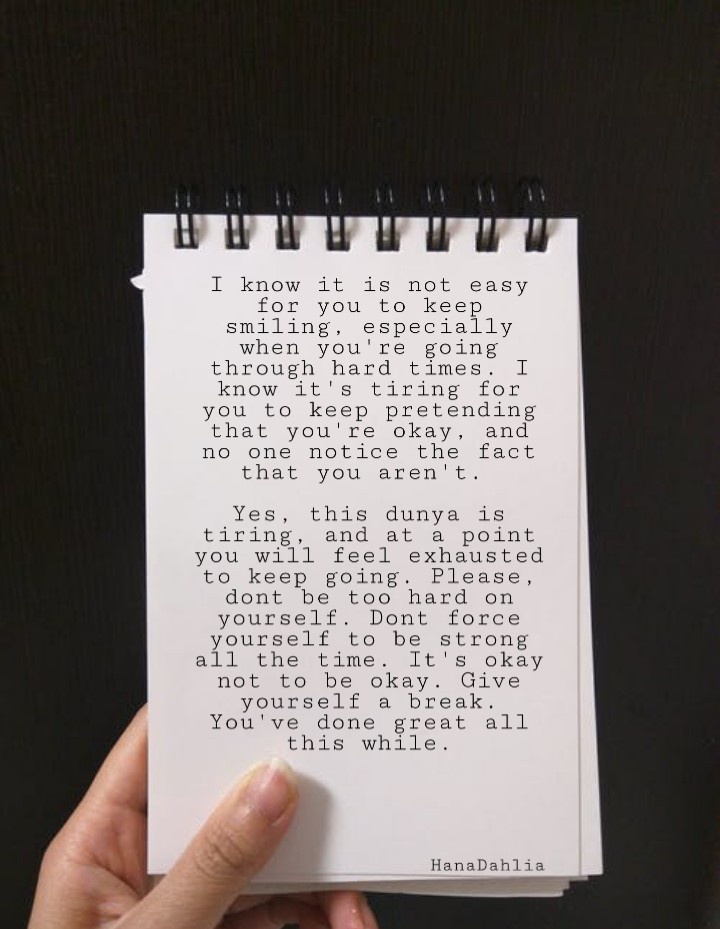 I know it is not easy
for you to keep
smiling, especially
when you're going
through hard times. I
know it's tiring for
you to keep pretending
that you're okay, and
no one notice the fact
that you aren't.
Yes, this dunya is
tiring, and at a point
you will feel exhausted
to keep going. Please,
dont be too hard on
yourself. Dont force
yourself to be strong
all the time. It's okay
not to be okay. Give
yourself a break.
You've done great all
this while.
HanaDahlia